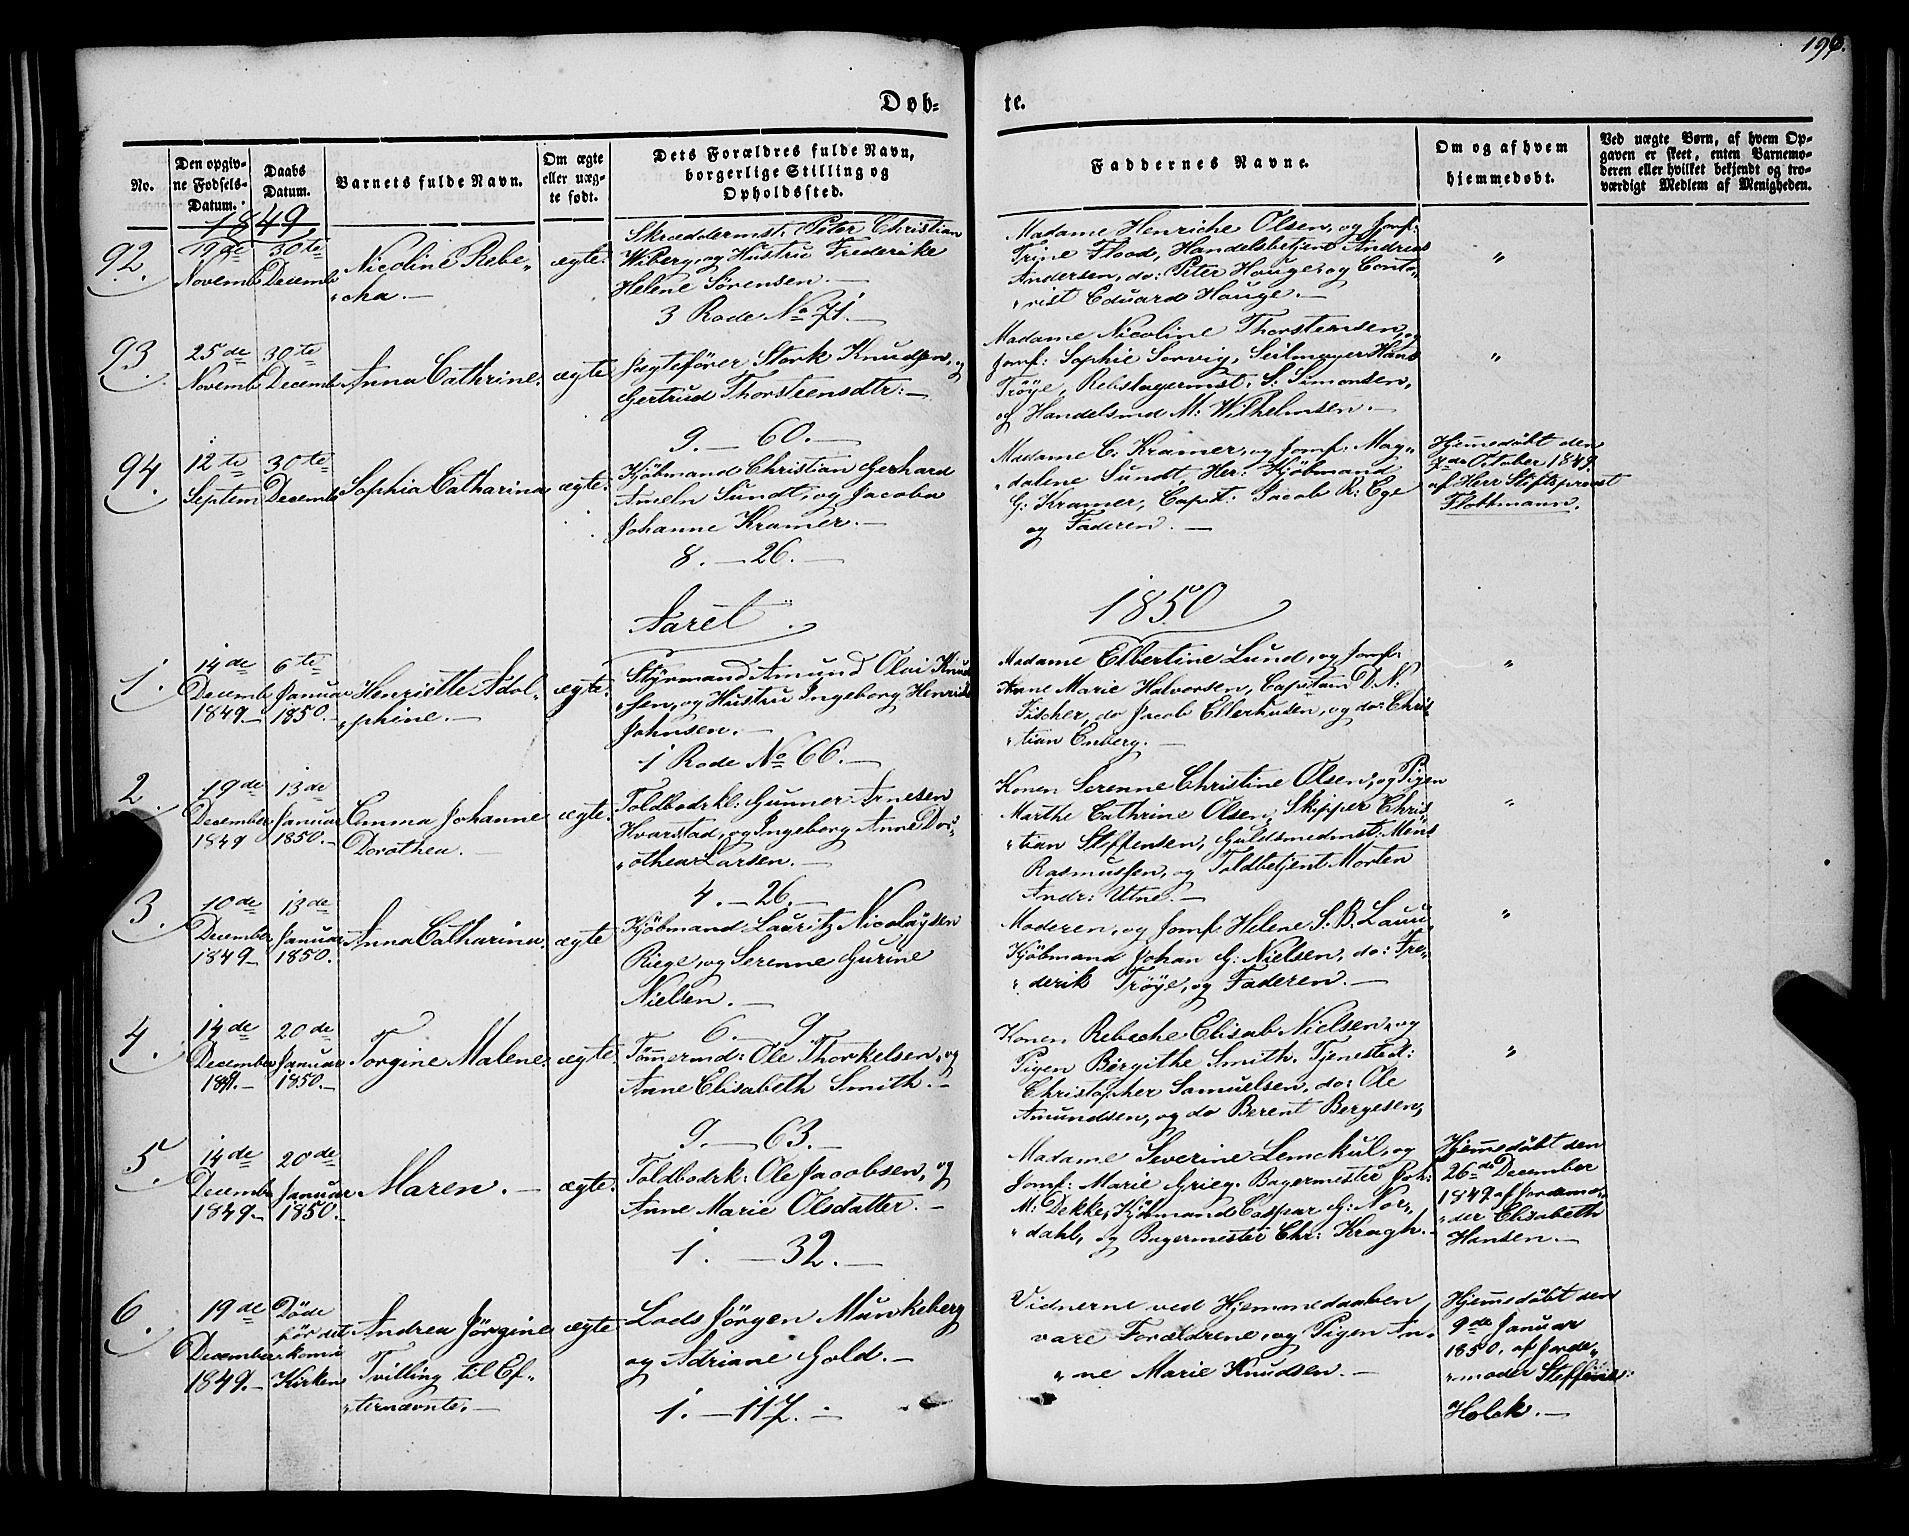 196.
Døb-
te.
No.
Den opgiv-
ne Fødsels-
Datum.
Daabs
Datum.
Barnets fulde Navn.
Om ægte
eller uæg-
te født.
Dets Forældres fulde Navn,
borgerlige Stilling og
Opholdssted.
Faddernes Navne.
Om og af hvem
hjemmedøbt.
Ved uægte Børn, af hvem Op-
gaven er skeet, enten Barnemo-
deren eller hvilket bekjendt og tro-
værdigt Medlem af Menigheden.
1849.
92.
19de
Novemb
30te
Decemb
Nicoline Rebe-
"cha.
ægte.
Skræddermst. Peter Christian
Wiberg, og Hustru Frederike
Helene Sørensen.
3 Rode No 71.
Madame Henriche Olsen, og Jomf:
Trine Flood, Handelsbetjent Andreas
Andersen, do: Peter Hauge, og Conto-
"rist Eduard Hauge.
"
93.
25de
Novemb
30te
Decemb
Anna Cathrine.
ægte
Jægtefører Stork Knudsen, og
Gertrud Thorsteensdtr:
9. 60.
Madame Nicoline Thorstensen, og
Jomf: Sophie Sørvig, Seilmager Hans
Trøye, Rebslagermst. S. Simonsen,
og Handelsmd M: Wilhelmsen.
"
94.
12te
Septem
30te
Decemb
Sophia Catharina
ægte.
Kjøbmand Christian Gerhard
Ameln Sundt, og Jacoba
Johanne Kramer.
8. 26.
Madame C. Kramer, og Jomf. Mag-
"dalene Sundt, Her: Kjøbmand
G: Kramer, Capt: Jacob R: Ege
og Faderen.
Hjemedøbt den
7de October 1849
af Herr Stiftsprovst
Flottmann.
Aaret
1850
1.
14de
Decemb
1849.
6te
Januar
1850.
Henriette Adol-
"phine.
ægte.
Styrmand Amund Olai Knud-
"sen, og Hustru Ingeborg Henrik
Johnsen.
1 Rode No 66.
Madame Elbertine Lund, og Jomf:
Anne Marie Halvorsen, Capitain D. N:
Fischer, do Jacob Ellerhusen, og do: Chris-
"tian Enberg.
"
2.
19de
December
1849
13de
Januar
1850.
Emma Johanne
Dorothea.
ægte.
Toldbodrkl: Gunner Arnesen
Hvarstad, og Ingeborg Anne Dor-
"othea Larsen.
4. 26.
Konen Serenne Christine Olsen, og Pigen
Marthe Cathrine Olsen, Skipper Chris-
"tian Steffensen, Guldsmedmst: Mens
Rasmussen, og Toldbetjent Morten
Andr: Utne.
"
3.
10de
December
1849
13de
Januar
1850.
Anna Catharina.
ægte
Kjøbmand Lauritz Nicolaysen
Riege, og Serenne Gurine
Nielsen.
6. 9.
Moderen, og Jomf. Helene S. B. Lauu,
Kjøbmand Johan G: Nielsen, do: Fre-
"derik Trøye, og Faderen.
"
4.
14de
December
1849.
20de
Januar
1850.
Torgine Malene.
ægte.
Tømermd: Ole Thorkelsen, og
Anne Elisabeth Smith.
9. 63.
Konen Rebeche Elisab Nielsen, og
Pigen Bergithe Smith. Tjenestedr:
Christopher Samuelsen, do: Ole
Amundsen, og do Berent Bergesen,
"
5.
14de
Decemb
1849.
20de
Januar
1850.
Maren.
ægte.
Toldbodrk: Ole Jacobsen, og
Anne Marie Olsdatter.
1. 32.
Madame Severine Lemckul, og
Jomf: Marie Grieg. Bagermester Joh:
M: Dekke, Kjøbmand Caspar G: Nor-
"dahl, og Bagermester Chr: Kragh.
Hjemedøbt den
26de December
1849 af Jordemo-
"der Elisabeth
Hansen.
6.
19de
December
1849.
Døde
før det
kom i
Kirken
Andrea Jørgine
Tvilling til Ef-
"ternævnte.
ægte
Lods Jørgen Munkeberg
og Adriane Gold.
1. 117.
Vidnerne ved Hjemmedaaben
vare Forældrene, og Pigen An-
"ne Marie Knudsen.
Hjemedøbt den
9de Januar
1850, af Jorde-
"moder Steffine
Holck.